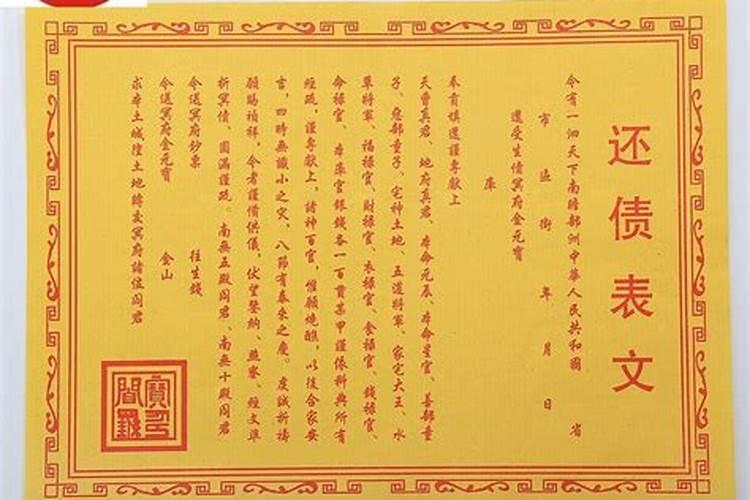 还债表文
今有一泗天下南瞻部洲中華人民共和國 省
市 區 街 年 月 日
還受生債冥府金元寶
庫
奉旨填還謹專獻上
天曹真君、地府真君、本命元辰、本命星官、善部童
子、惡部童子、宅神土地、五道將軍、家宅大王、水
草將軍、福禄官、財禄官、衣禄官、食禄官、錢禄官、
命禄官、本庫官銀錢各一百貫某甲謹依科典所有
經疏，謹專獻上，諸神百官，惟願燒醮，以後合家安
吉，四時無讖小之災，八節有泰來之慶。虔誠祈禱
願賜禎祥，令者謹備供儀，伏望鑒納、並寮、經文準
折冥債、圓滿謹疏。南無五殿閻君、南無十殿閻君
令送冥府鈔票 往生錢
令送冥府金元寶 金山
求本土城隍土地轉交冥府諸位閻君